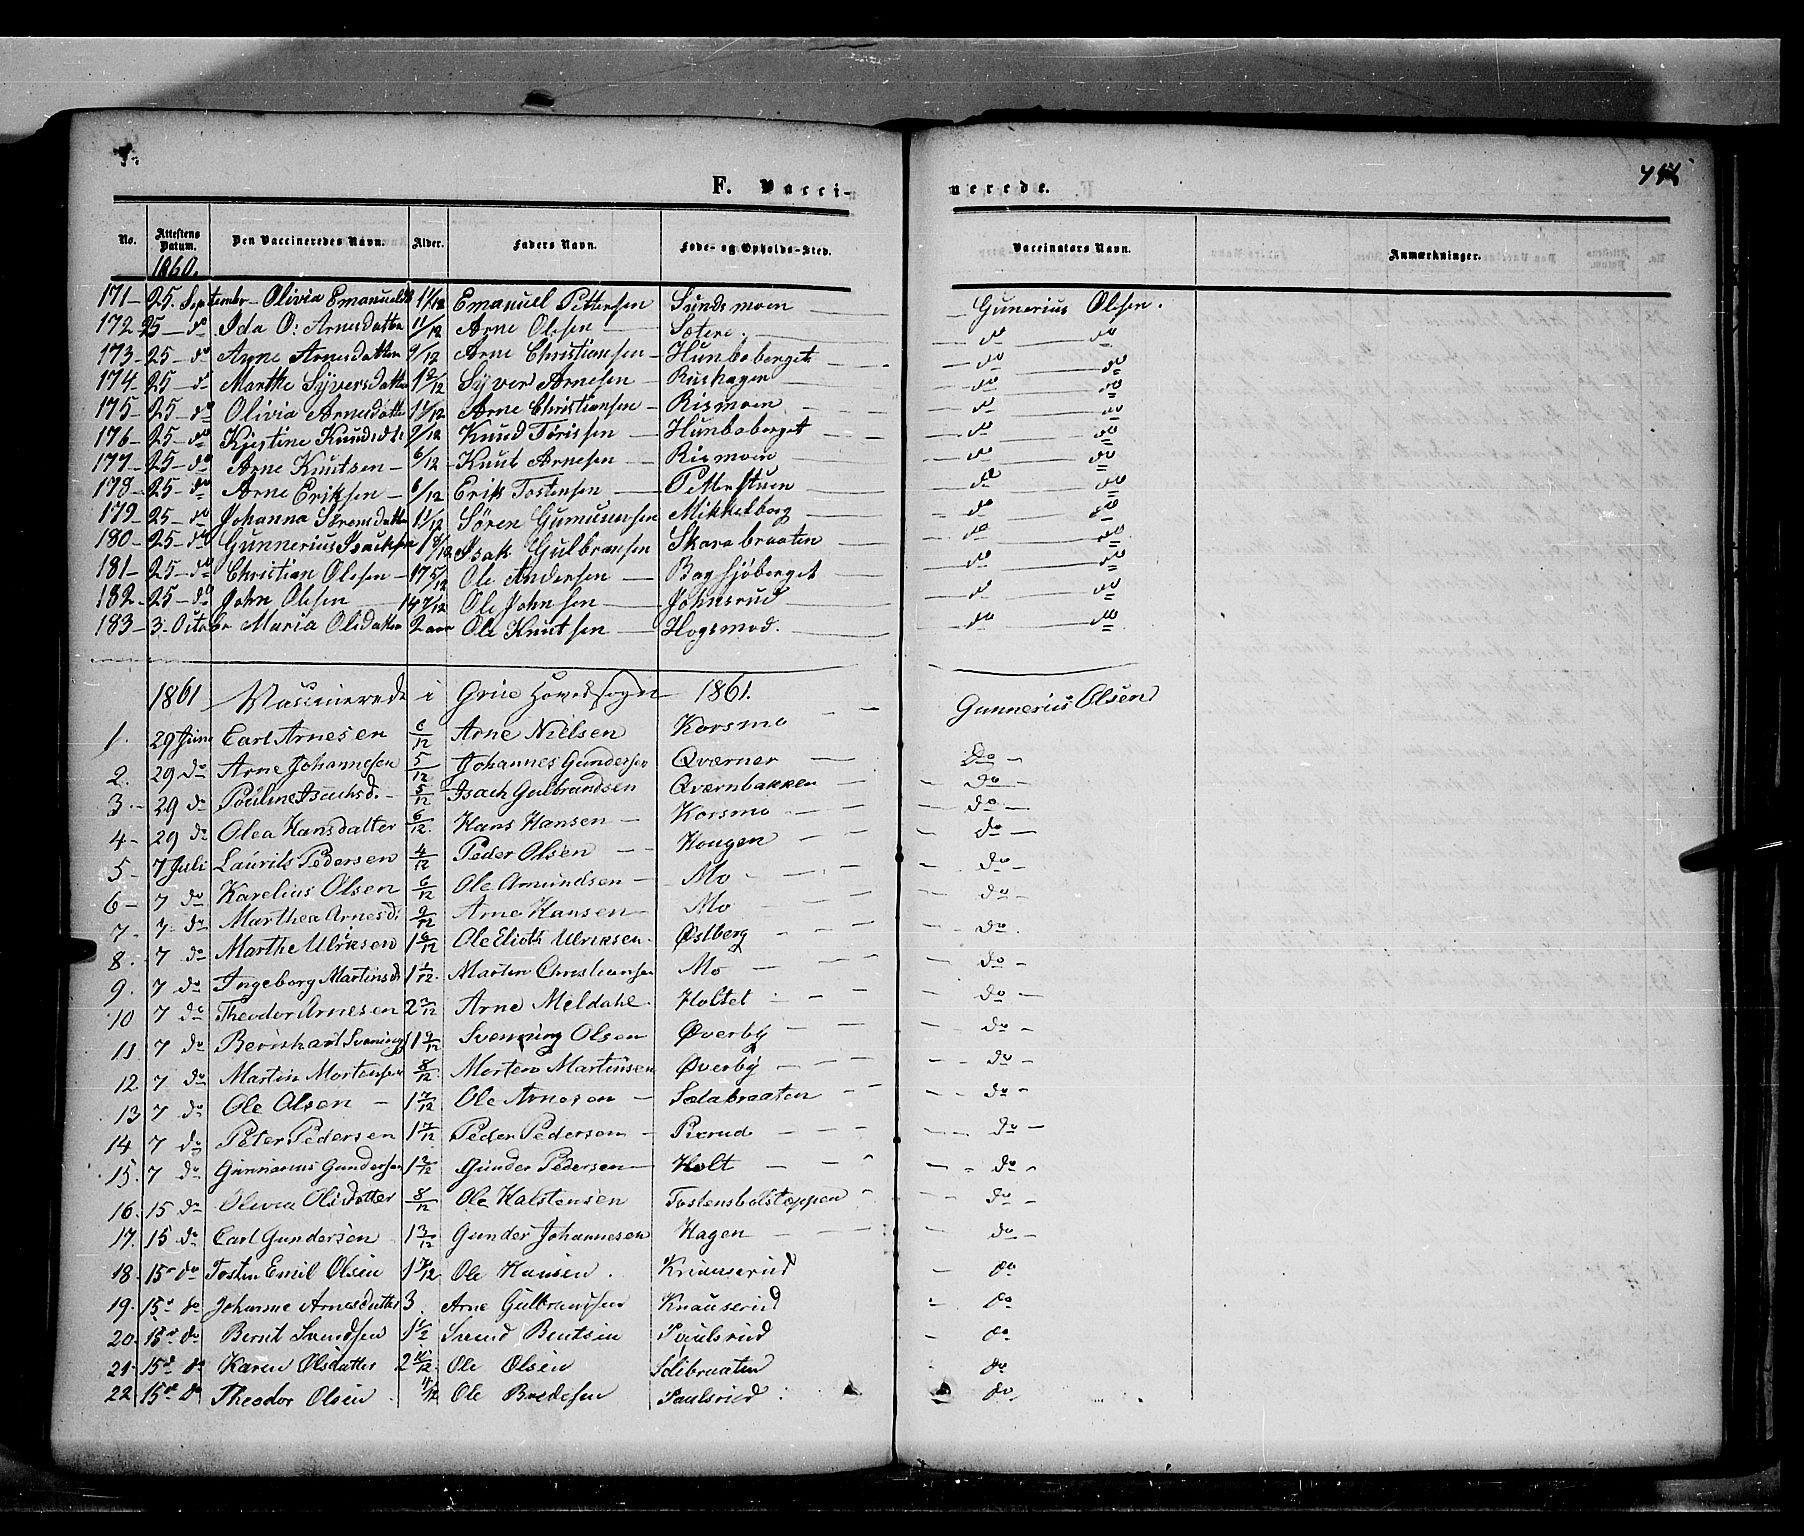 F. Vacci-
nerede.
No. Attestens Datum. Den Vaccineredes Navn. Alder. Faders Navn. Føde- og Opholds-Sted. Vaccinators Navn. Anmærkninger.
1860.
171 – 25 September – Olivia Emanuelsd 1 1/12 Emanuel Pettersen Sundsmoen – Gunerius Olsen.
172 25 – do Ida O: Arnesdatter 11/12 Arne Olssen Sætere. – do do
173 – 25 – do Anne Arnesdatter 9/12 Arne Christiansen – Hunboberget – do do
174 – 25 – d Marthe Syversdatter 1 2/12 Syver Arnesen – Rushagen – do do
175 – 25 – do Olivia Arnesdatter 1 1/12 Arne Christiansen – Rismoen – do do
176 – 25 – do Kiestine Knudsdt 9/12 Knud Tørissen – Hunboberget – do do
177 – 25 – do Arne Knutsen – 6/12 – Knut Arnesen – Rismoen – do do
178 – 25 – do Arne Eriksen – 6/12 Erik Tostensen – Petterstuen – do do
179 – 25 – do Johanna Sørensdatter 1 1/12 Søren Gumusensen Mikkelborg – do do
180 – 25 – do Gunnerius Isacksen 1 8/12 Isak Gulbransen Skarabraaten – do do
181 – 25 – do Christian Olssen – 17 5/12 Ole Andersen – Bagsjöberget – do do
182 – 25 – do John Olssen 14 7/12 Ole Johnsen – Johnsrud – do do
183 – 3 Octobr Maria Olsdatter 2 aar Ole Knutsen – Hogsmod. – do do
1861 Vaccinerede i Grue Hovedsogn 1861.
Gunnerius Olsen
1. 29 Juni Carl Arnesen 6/12 Arne Nielsen Korsmo
2. 29 do Arne Johannesen 5/12 Johannes Gundersen Qværner – Do –
3. – 29 do Pouline Isachsd. – 5/12 Isach Gulbrandsen Qværnbakken – – Do –
4 – 29 do Olea Hansdatter 6/12. Hans Hansen – Korsmo – – do –
5 – 7 Juli Laurits Pedersen 4/12 Peder Olsen – Hougen – – do –
6 – 7 do Karelius Olsen 6/12 Ole Amundsen – Mo – – do –
7. – 7 do Marthea Arnesd: 9/12 Arne Hansen – Mo – – do –
8. 7 do Marthe Ulriksen 1 6/12 Ole Eliots Ulriksen. Østberg – – do.
9. 7 do Ingeborg Martinsd 1 1/12. Marten Christiansen Mo – – do –
10 7 do Theodor Arnesen 2 3/12 Arne Meldahl. Holtet – – do –
11 7 do Bernhart Svenings 1 9/12 Svenning Olsen Øverby – – do –
12 7 do Martin Mortensen 8/12 Morten Martinsen Øverby – – do –
13 7 do Ole Olsen – 1 7/12 Ole Arnesen – Solabraaten – – do –
14 7 do Peter Pedersen 1 7/12 Peder Pedersen – Rixrud – – do –
15. 7 do Gunnarius Gundersen 1 2/12 Gunder Pedersen – Holt – – do –
16. 15 do Olivia Olsdatter 8/12 Ole Halstensen Tostensbolstoppen – – do –
17. 15 do Carl Gundersen 1 3/12 Gunder Johannesen Hagen – – do –
18. 15 do Tosten Emil Olsen 1 7/12 Ole Hansen. Knauserud – do
19. 15 do Johanne Arnesdatter 3. Arne Gulbransen Knauserud – do
20. 15 do Bernt Svendsen 1 1/2 Svend Bentsen Paulsrud – do
21. 15 do Karen Olsdatter 2 10/12. Ole Olsen Solibraaten do
22. 15 do Theodor Olsen. 4/12 Ole Bredesen Paulsrud. do